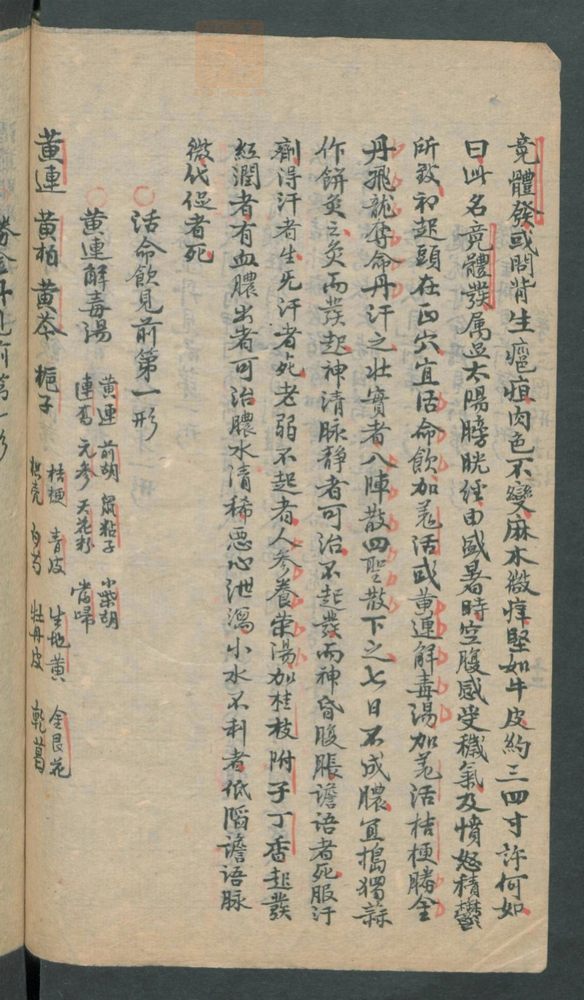 竟體發或問背生瘧疽肉色不變麻木微痒堅如牛皮約三四寸許何如
曰此名竟體發属足太陽膀胱經由盛暑時空腹感受穢氣及憤怒積鬱
所致初起頭在正穴宜活命飲加羗活或黄連解毒湯加羗活桔梗勝金
丹飛龍奪命丹汗之壮實者八陣散四聖散下之七日不成膿宜搗獨蒜
作餅灸之灸而發起神清脉静者可治不起發而神昏腹脹譫语者死服汗
劑得汗者生无汗者死老弱不起者人参養荣湯加桂枝附子丁香起發
紅潤者有血膿出者可治膿水清稀悪心泄瀉小水不利者低陷譫语脉
微代促者死
活命飲見前第一形
黄連解毒湯
黄連 前胡 鼠粘子 小柴胡
連喬 元参 天花粉 當歸
黄連 黄柏 黄芩 梔子
桔梗 青皮 生地黄 金艮花
枳壳 白芍 牡丹皮 乾葛